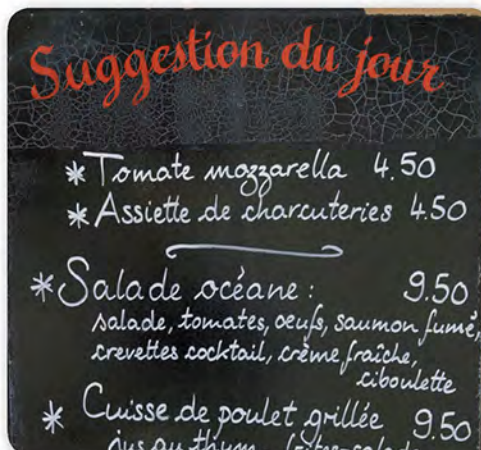 Suggestion du jour
* Tomate mozzarella 4.50
* Assiette de charcuteries 4.50
* Salade océane : 9.50
salade, tomates, oeufs, saumon fumé,
crevettes cocktail, crème fraîche,
ciboulette
* Cuisse de poulet grillée 9.50
jus au thym frites-salade